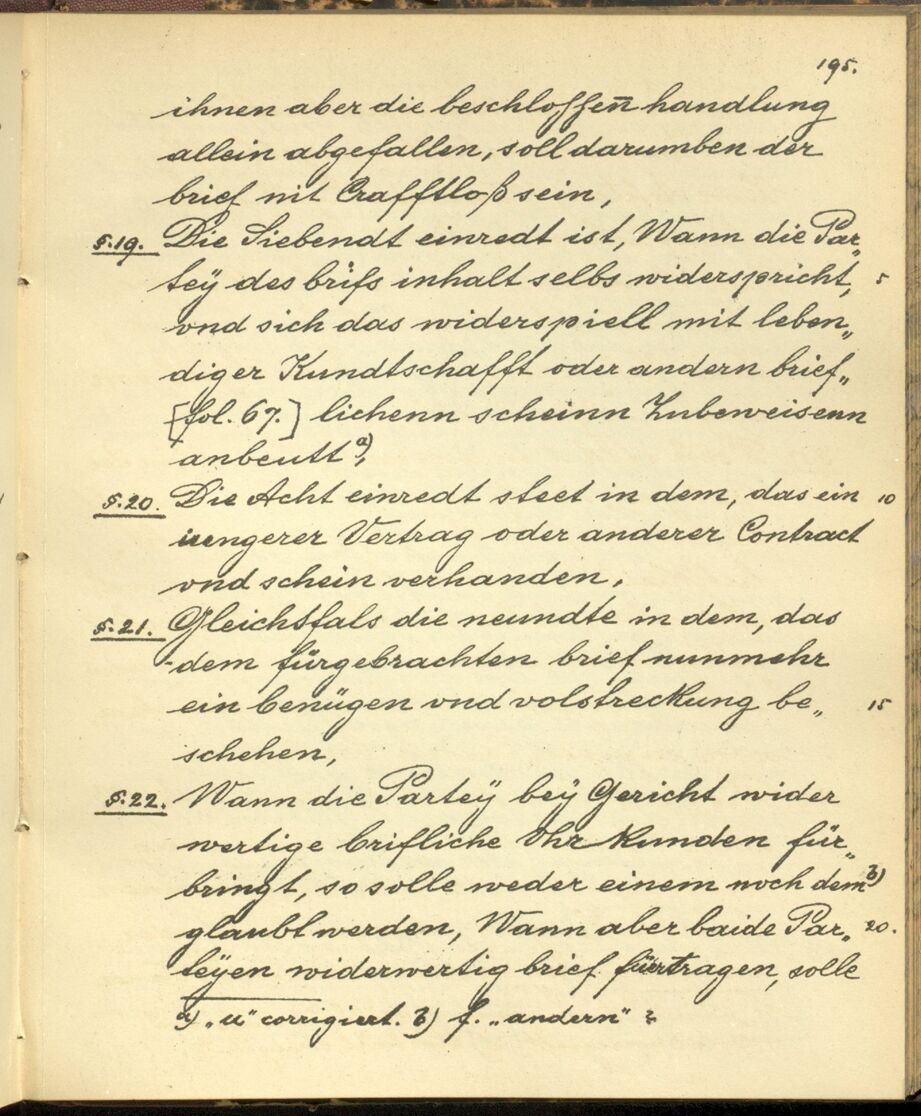 195.
ihnen aber die beschlossen̄ handlung
allein abgefallen, soll darumben der
brief nit Crafftloß sein,
§.19. Die Siebendt einredt ist, Wann die Par„
teÿ des brifs inhalt selbs widerspricht, 5
vnd sich das widerspiell mit leben„
diger Kundtschafft oder andern brief„
[fol. 67.] lichenn scheinn Zubeweisenn
anbeutt a),
§.20. Die Acht einredt steet in dem, das ein 10
iüngerer Vertrag oder anderer Contract
vnd schein verhanden,
§.21. Gleichsfals die neundte in dem, das
dem fürgebrachten brief nunmehr
ein benügen vnd volstreckung be„ 15
schehen,
§.22. Wann die Parteÿ beÿ Gericht wider
wertige brifliche Vhrkunden für„
bringt, so solle weder einem noch dem b)
glaubt werden, Wann aber baide Par„ 20.
teÿen widerwertig brief fürtragen, solle
a) „u" corrigiert. b) f. „andern" ?